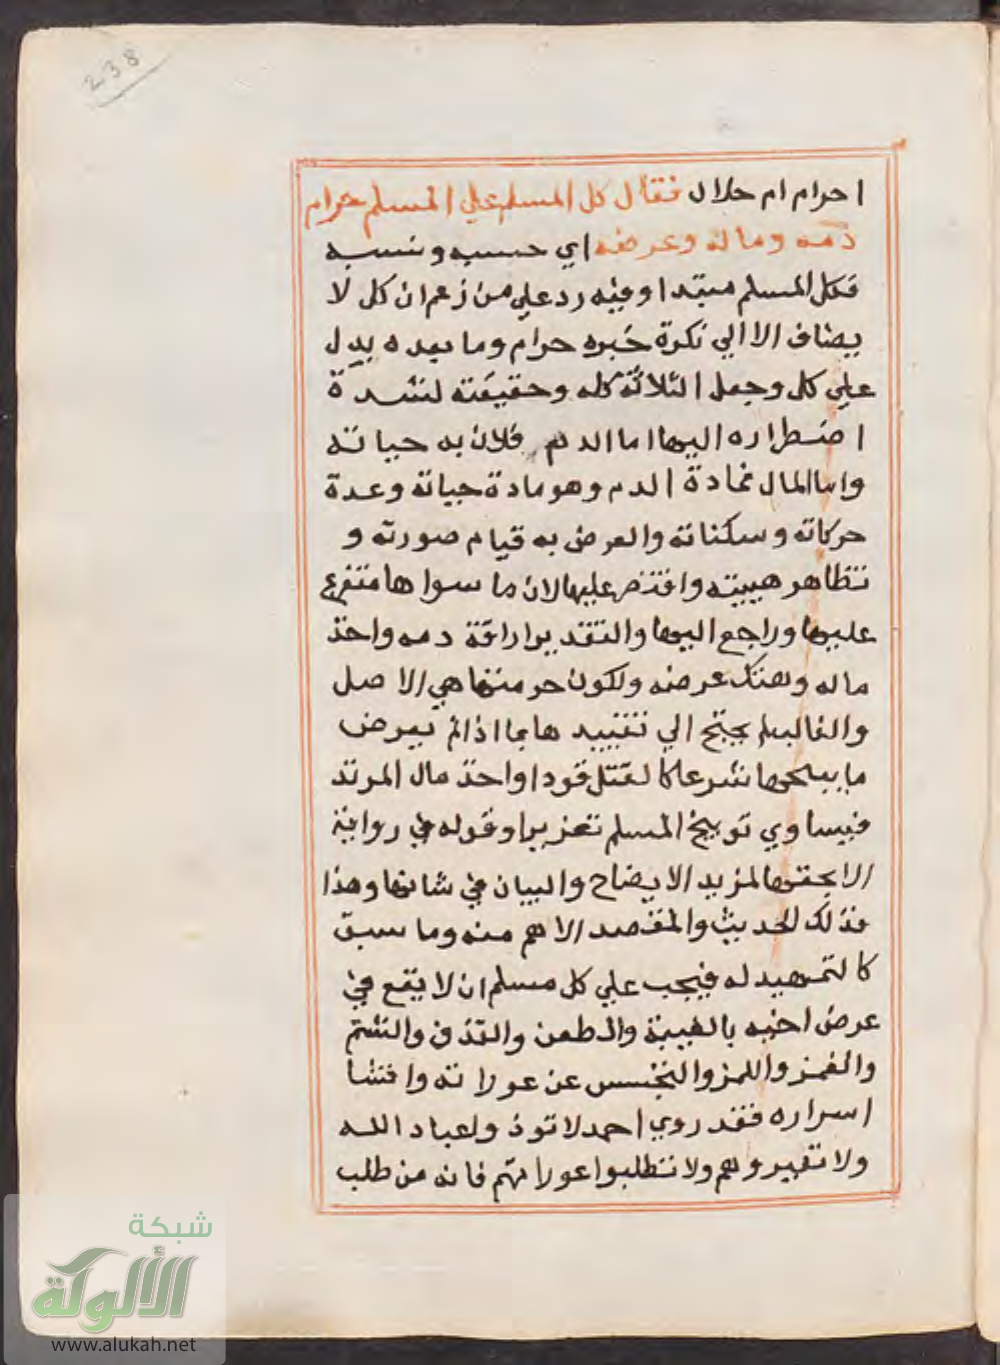 238
احرام ام حلال فقال كل المسلم علي المسلم حرام
دمه وماله وعرضه اي حسبه ونسبه
فكل المسلم مبتدا وفيه رد علي من زعم ان كل لا
يضاف الا الي نكرة خبره حرام وما بعده يدل
علي كل وجعل الثلاثة كله وحقيقته لشدة
اضطراره اليها اما الدم فلان به حياته
واما المال فمادة الدم وهو مادة حياته وعدة
حركاته وسكناته والعرض به قيام صورته و
تتظاهر هيبته واقتصر عليها لان ما سواها متفرع
عليها وراجع اليها والتقدير اراقة دمه واخذ
ماله وهتك عرضه ولكون حرمتها هي الاصل
والغالب لم يحتج الي تقييدها بما اذا لم يعرض
ما يبيحها شرعا كالقتل قودا واخذ مال المرتد
فيساوي توبيخ المسلم تعزيرا وقوله في رواية
الا بحقها لمزيد الايضاح والبيان في شانها وهذا
فذلك الحديث والمقصد الاهم منه وما سبق
كالتمهيد له فيجب علي كل مسلم ان لا يقع في
عرض اخيه بالغيبة والطعن والقذف والشتم
والغمز واللمز والتجسس عن عوراته وافشا
اسراره فقد روي احمد لا توذوا عباد الله
ولا تعيروهم ولا تتطلبوا عوراتهم فانه من طلب
شبكة
الألوكة
www.alukah.net